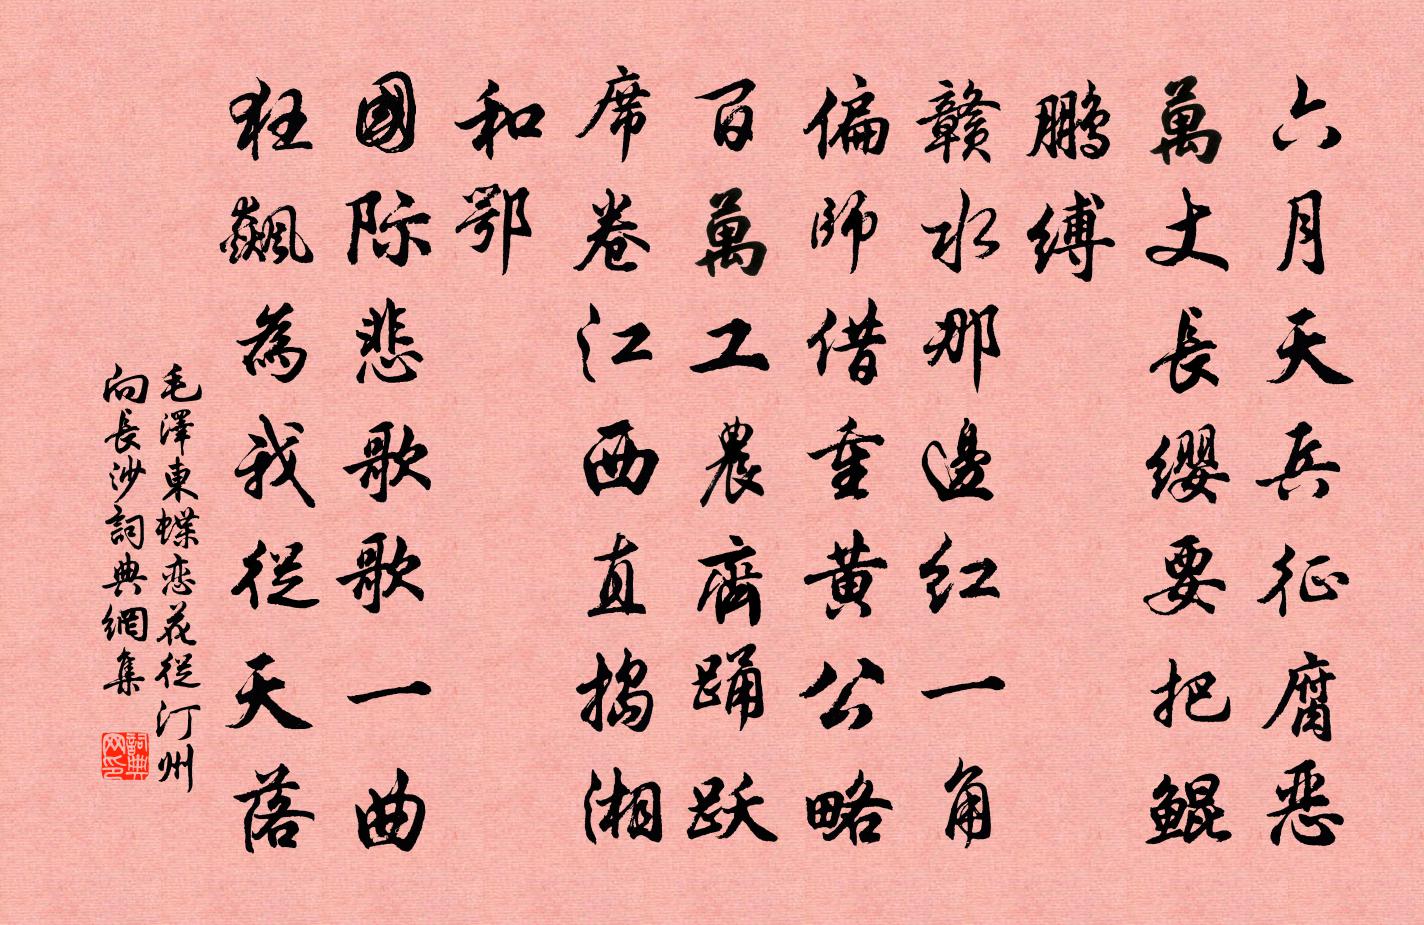 六月天兵征腐恶
萬丈長缨要把鲲
鹏缚
赣水那邊红一角
偏師借重黄公略
百萬工農齊踊跃
席卷江西直捣湘
和鄂
國际悲歌歌一曲
狂飙為我從天落
毛澤東蝶恋花從汀州
向長沙詞典網集
詞典
网印